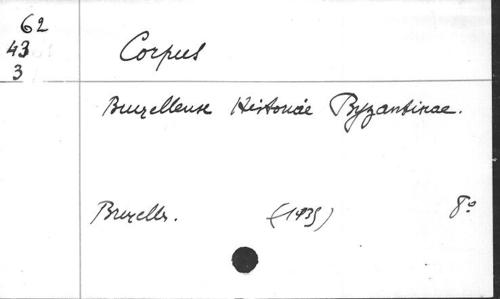 62
43
3
Corpus
Bruxellense Historiae Byzantinae.
Bruxelles. (1935) 8°